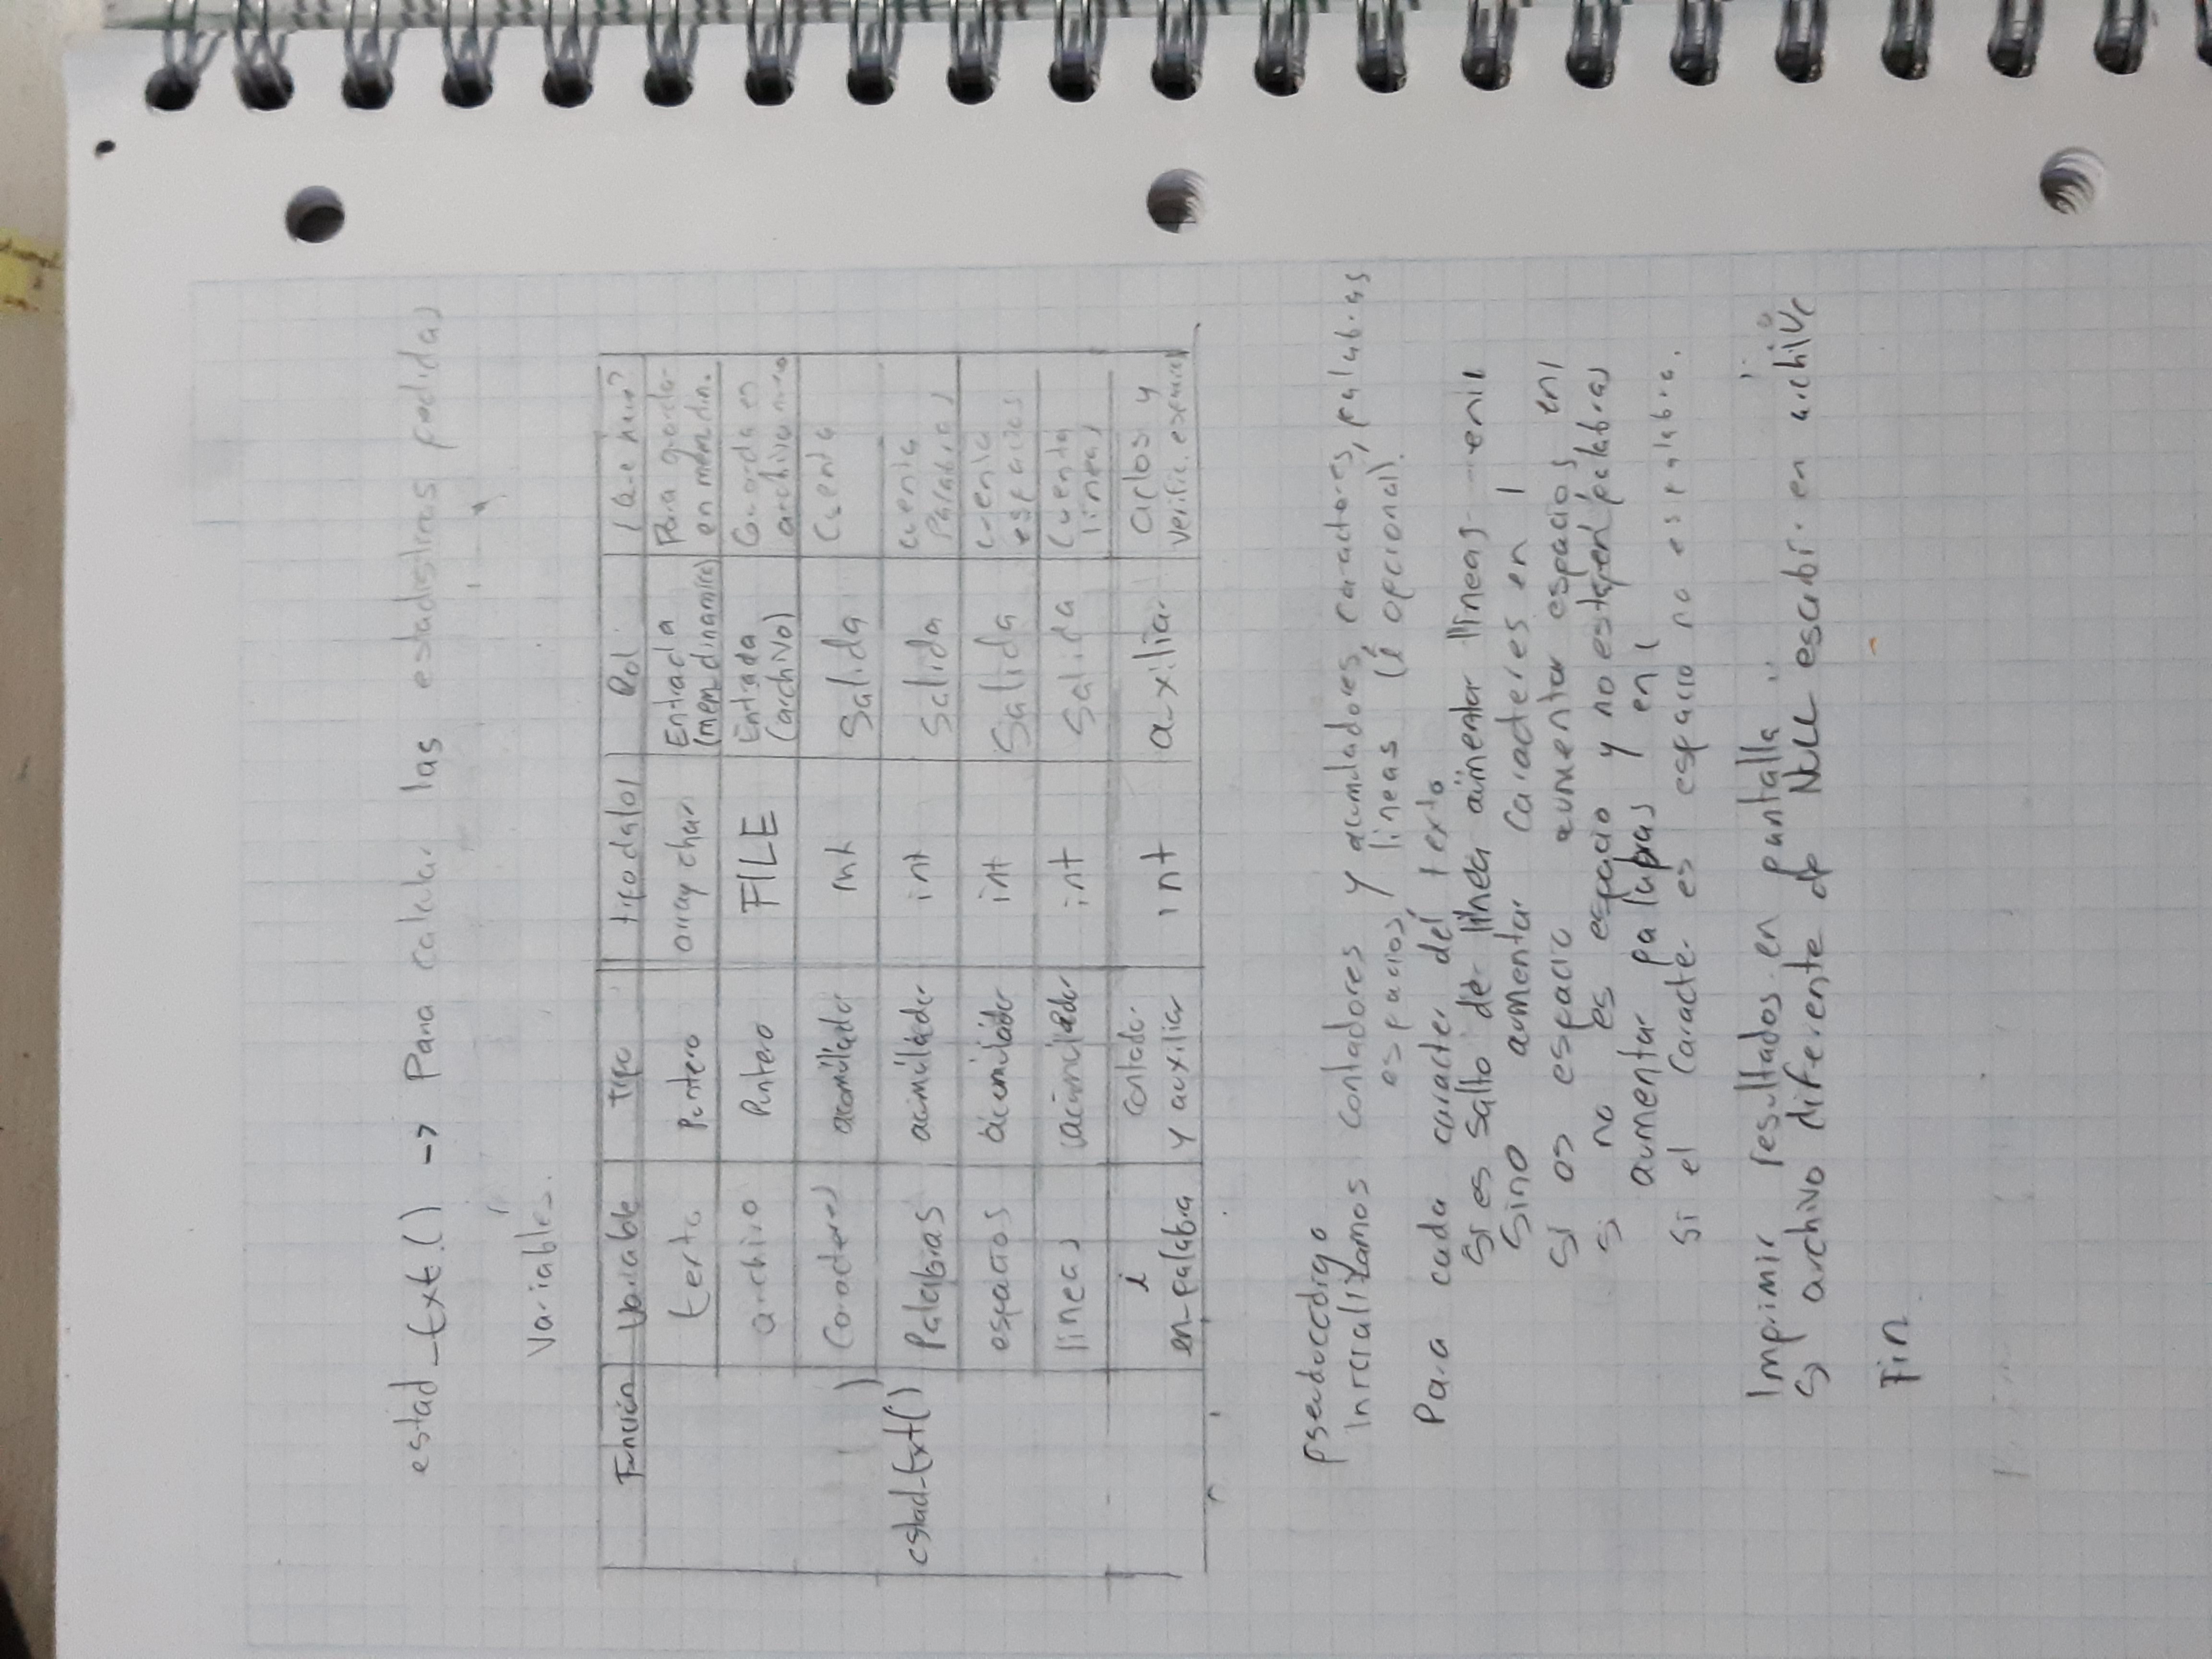 estad_txt.() -> Para calcular las estadisticas pedidas
Variables.
Función Variable tipo tipo datos Rol ¿Que hace?
texto Puntero array char Entrada (mem_dinamica) Para guardar en mem_din.
archivo Puntero FILE Entrada (archivo) Guarda en archivo nuevo
Caracteres acomúlador int Salida Cuenta
estad_txt() Palabras acúmulador int Salida cuenta Palabras
espacios acumulador int Salida cuenta espacios
lineas acúmulador int Salida Cuenta lineas
i en_palabra contador y auxiliar int auxiliar ciclos y verific. espacios
pseudocodigo
Inicializamos contadores y acumuladores, caracteres, palabras
espacios, lineas (i opcional).
Para cada caracter del texto
Si es salto de línea aumentar líneas en 1
Sino aumentar caracteres en 1
Si es espacio aumentar espacios en 1
Si no es espacio y no esta en palabras
aumentar palabras en 1
Si el Caracter es espacio no es palabra.
Imprimir resultados en pantalla
Si archivo diferente de NULL escribir en archivo
Fin